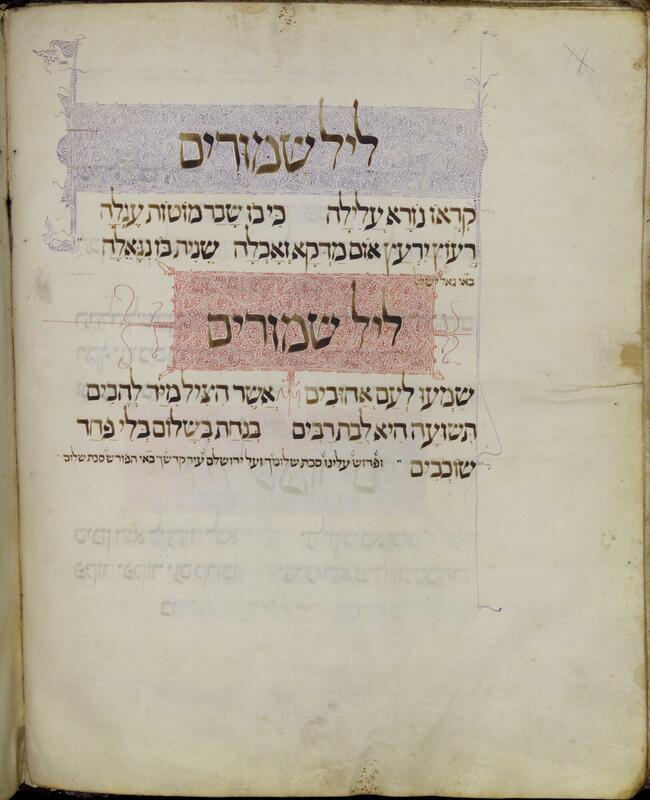 ליל שמורים
קראו נורא עלילה כי בו שבר מוטות עגלה
רעוץ ירעץ אום מדקא ואכלה שנית בו נגאלה
ליל שמורים
שמעו לעם אהובים אשר הציל מיד להבים
תשועה היא לבת רבים בנחת בשלום בלי פחד
שוכבים ופרוש עלינו סכת שלומך ועל ירושלם עיר קדשך באי הפורש סכת שלום